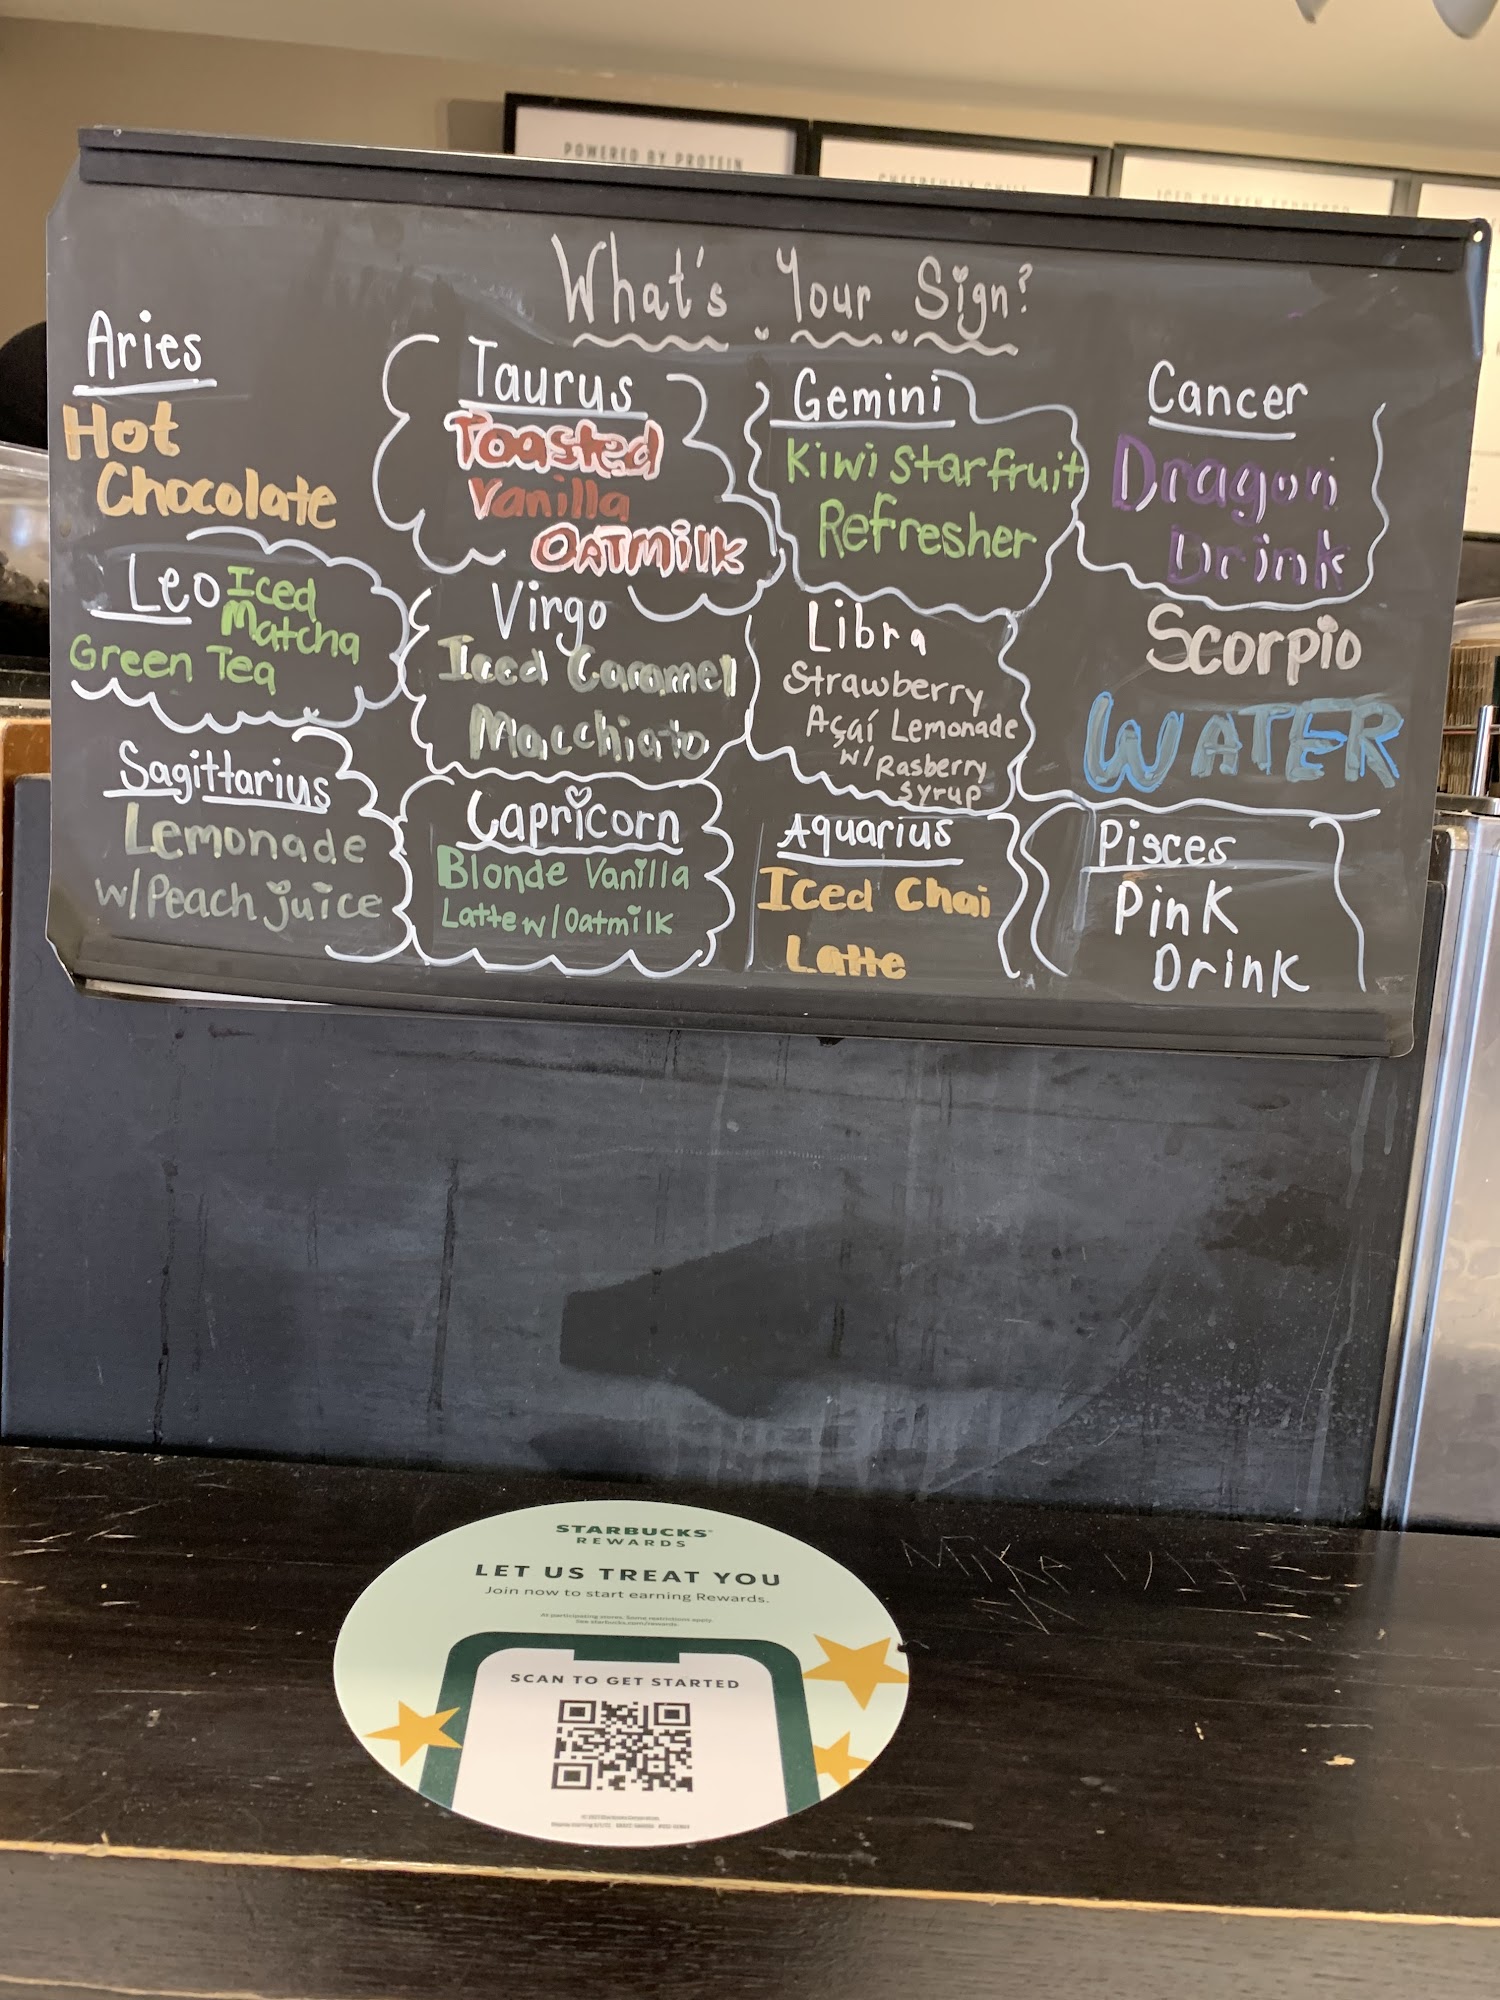 POWERED BY PROTEIN
CHEERFULLY CHILL
ICED SHAKEN ESPRESSO
What's Your Sign?
Aries
Hot
Chocolate
Taurus
Toasted
Vanilla
OATMilk
Gemini
Kiwi Starfruit
Refresher
Cancer
Dragon
Drink
Leo Iced
Matcha
Green Tea
Virgo
Iced Caramel
Macchiato
Libra
Strawberry
Açaí Lemonade
w/ Rasberry
syrup
Scorpio
WATER
Sagittarius
Lemonade
w/Peach juice
Capricorn
Blonde Vanilla
Latte w/Oatmilk
Aquarius
Iced Chai
Latte
Pisces
Pink
Drink
STARBUCKS®
REWARDS
LET US TREAT YOU
Join now to start earning Rewards.
At participating stores. Some restrictions apply.
See starbucks.com/rewards.
SCAN TO GET STARTED
MIKA